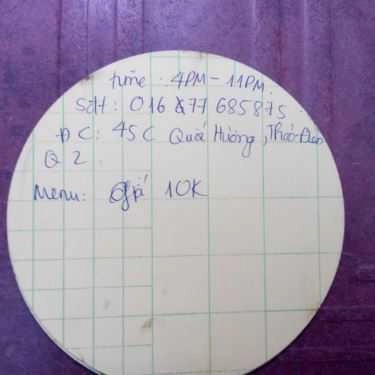 time : 4PM - 11PM.
SĐT: 016 77 685875
ĐC: 45C Quốc Hương, Thảo Điền
Q2.
Menu: giá 10K